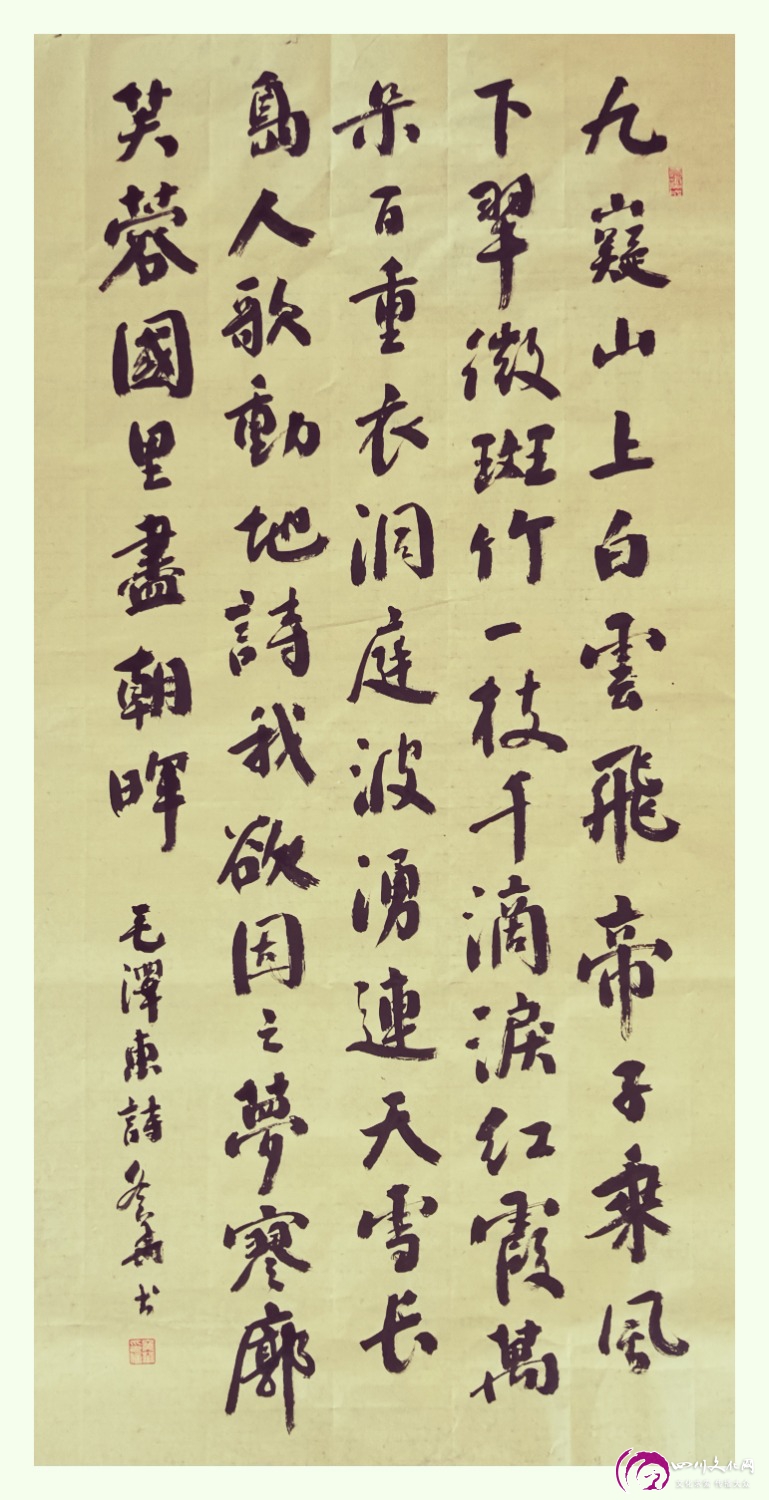 九嶷山上白雲飛帝子乘風
下翠微斑竹一枝千滴淚紅霞萬
朵百重衣洞庭波湧連天雪長
島人歌動地詩我欲因之夢寥廓
芙蓉國里盡朝暉
毛澤東詩 书
四川文化网